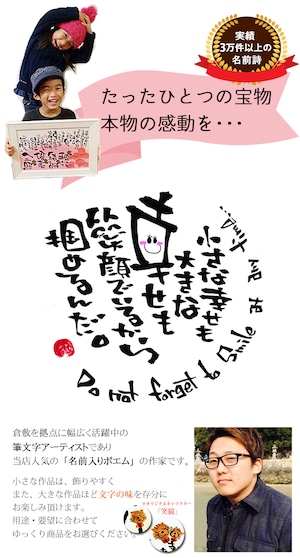 実績
3万件以上の
名前詩
たったひとつの宝物
本物の感動を・・・
小さな幸せも
大きな
幸せも
笑顔でいるから
掴めるんだ。
Do not forget to Smile at any time...
倉敷を拠点に幅広く活躍中の
筆文字アーティストであり
当店人気の「名前入りポエム」の作家です。
小さな作品は、飾りやすく
また、大きな作品ほど文字の味を存分に
お楽しみ頂けます。
用途・要望に合わせて
ゆっくり商品をお選びください。
※オリジナルキャラクター
「笑猫」